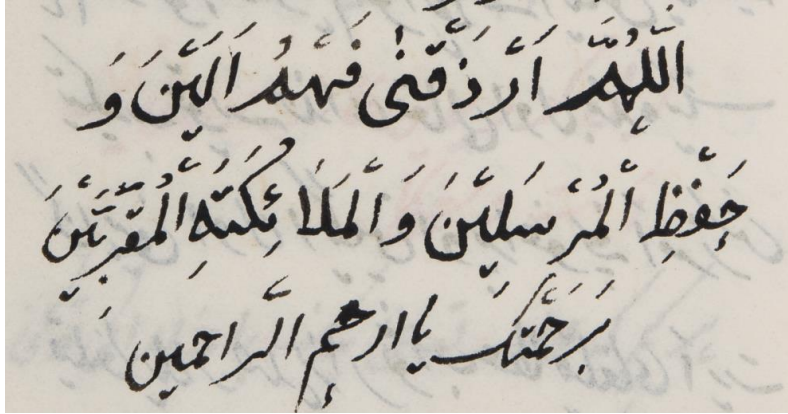 اَللّٰهُمَّ اَرْزُقْنٰى فَهْمُ اَلنَّبِيّٖنَ وَ
حِفْظِ الْمُرْسَلِيّنَ وَالْمَلَائِكَتِهِ الْمُقَرَّبِيّنَ
بَرَحْمَتِكَ يا ارحم الراحمين